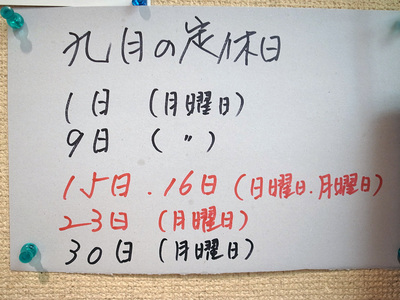 九月の定休日
1日 (月曜日)
9日 ( 〃 )
15日.16日(日曜日.月曜日)
23日(月曜日)
30日(月曜日)